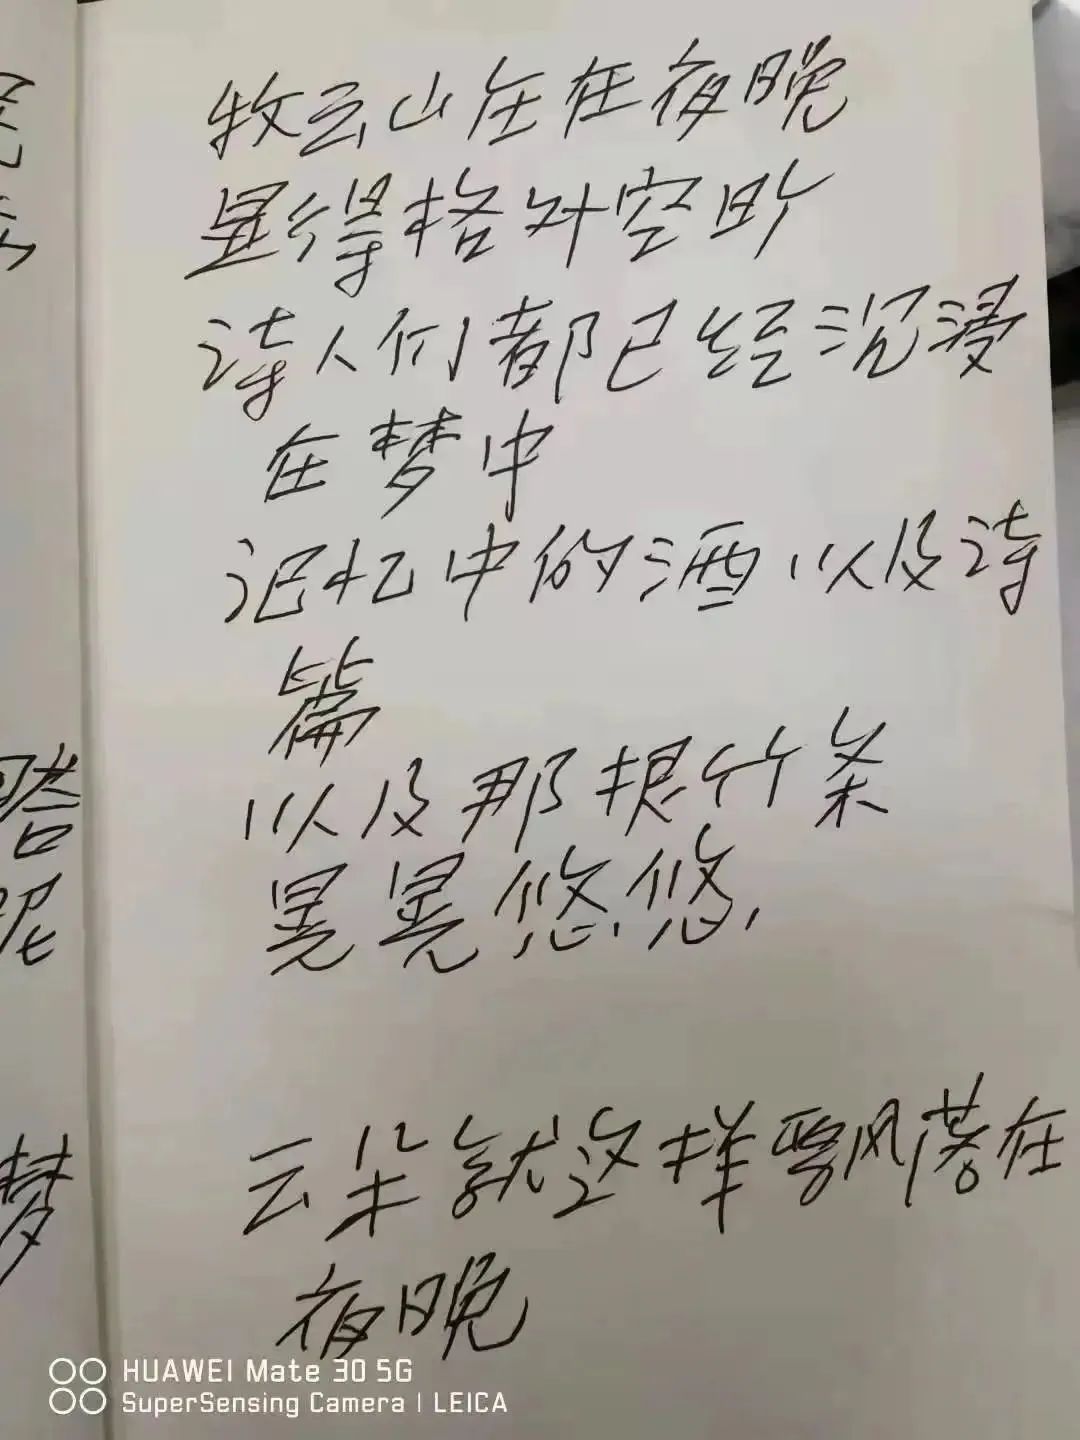 牧云山庄在夜晚
显得格外空旷
诗人们都已经沉浸
在梦中
记忆中的酒以及诗
篇
以及那根竹条
晃晃悠悠,
云朵就这样飘落在
夜晚
梦
HUAWEI Mate 30 5G
SuperSensing Camera | LEICA